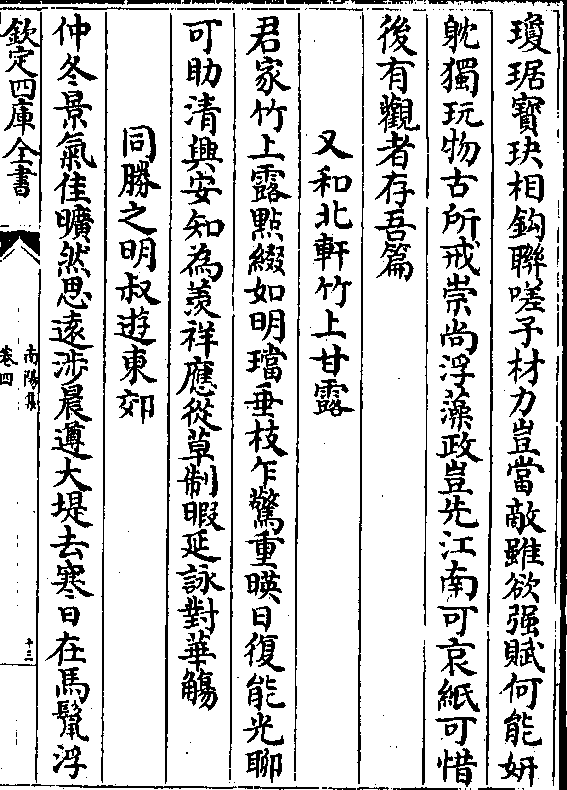 瓊琚寶玦相鈎聯嗟予材力豈當敵雖欲强賦何能妍
躭獨玩物古所戒崇尚浮藻政豈先江南可哀紙可惜
後有觀者存吾篇
又和北軒竹上甘露
君家竹上露點綴如明璫垂枝乍驚重暎日復能光聊
可助清興安知為美祥應從草制暇延詠對華觴
同勝之明叔遊東郊
仲冬景氣佳曠然思遠涉晨遵大堤去寒日在馬鬛浮
欽定四庫全書
南陽集
卷四
十三